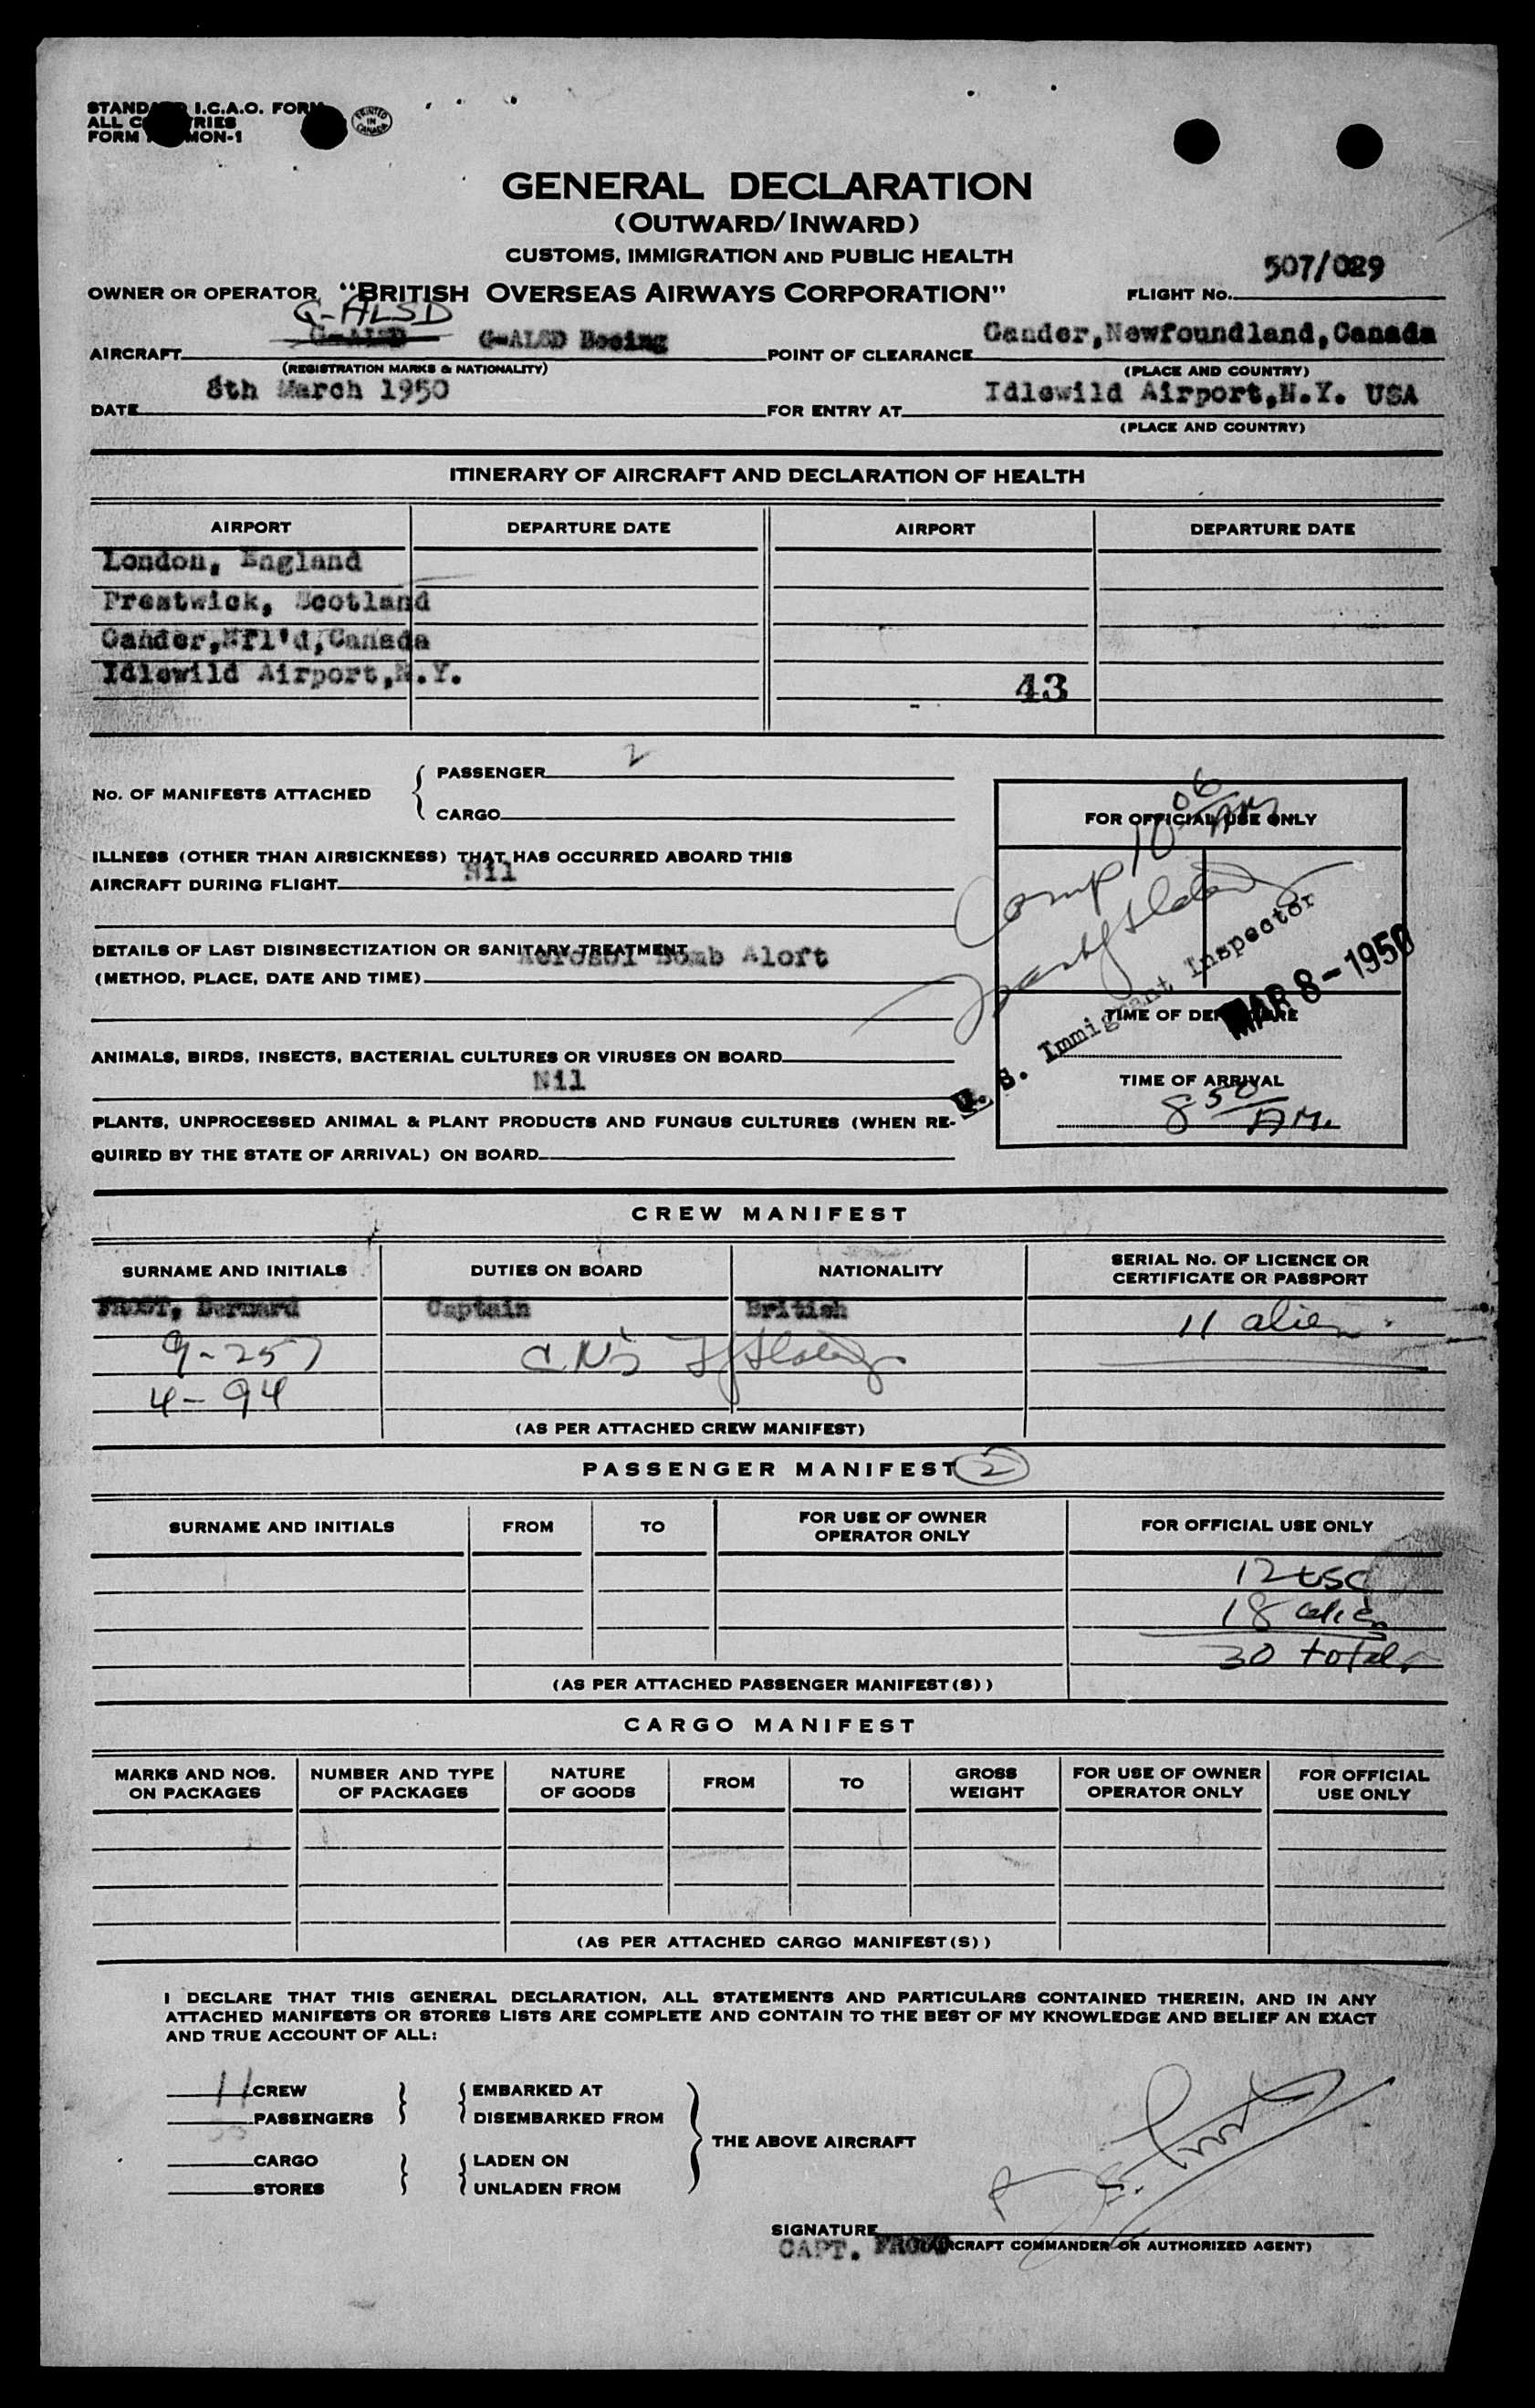 STANDARD I.C.A.O. FORM
ALL COUNTRIES
FORM MON-1
PRINTED IN CANADA
GENERAL DECLARATION
(OUTWARD/INWARD)
CUSTOMS, IMMIGRATION AND PUBLIC HEALTH
507/029
OWNER OR OPERATOR "BRITISH OVERSEAS AIRWAYS CORPORATION" FLIGHT No.
G-ALSD
G-ALSD G-ALSD Boeing Gander,Newfoundland,Canada
AIRCRAFT POINT OF CLEARANCE
(REGISTRATION MARKS & NATIONALITY) (PLACE AND COUNTRY)
8th March 1950 Idlewild Airport,N.Y. USA
DATE FOR ENTRY AT
(PLACE AND COUNTRY)
ITINERARY OF AIRCRAFT AND DECLARATION OF HEALTH
AIRPORT DEPARTURE DATE AIRPORT DEPARTURE DATE
London, England
Prestwick, Scotland
Gander,Nfl'd,Canada
Idlewild Airport,N.Y. 43
No. OF MANIFESTS ATTACHED
PASSENGER 2
CARGO
ILLNESS (OTHER THAN AIRSICKNESS) THAT HAS OCCURRED ABOARD THIS
AIRCRAFT DURING FLIGHT Nil
DETAILS OF LAST DISINSECTIZATION OR SANITARY TREATMENT
Aerosol Bomb Aloft
(METHOD, PLACE, DATE AND TIME)
ANIMALS, BIRDS, INSECTS, BACTERIAL CULTURES OR VIRUSES ON BOARD
Nil
PLANTS, UNPROCESSED ANIMAL & PLANT PRODUCTS AND FUNGUS CULTURES (WHEN RE-
QUIRED BY THE STATE OF ARRIVAL) ON BOARD
FOR OFFICIAL USE ONLY
Comp 10 06 AM
U. S. Immigrant Inspector
MAR 8-1950
TIME OF DEPARTURE
TIME OF ARRIVAL
8 50 AM.
CREW MANIFEST
SURNAME AND INITIALS DUTIES ON BOARD NATIONALITY SERIAL No. OF LICENCE OR
CERTIFICATE OR PASSPORT
FROST, Bernard Captain British 11 alien
9-257
4-94
(AS PER ATTACHED CREW MANIFEST)
PASSENGER MANIFEST 2
SURNAME AND INITIALS FROM TO FOR USE OF OWNER
OPERATOR ONLY FOR OFFICIAL USE ONLY
12 USC
18 alien
30 total
(AS PER ATTACHED PASSENGER MANIFEST(S))
CARGO MANIFEST
MARKS AND NOS.
ON PACKAGES NUMBER AND TYPE
OF PACKAGES NATURE
OF GOODS FROM TO GROSS
WEIGHT FOR USE OF OWNER
OPERATOR ONLY FOR OFFICIAL
USE ONLY
(AS PER ATTACHED CARGO MANIFEST(S))
I DECLARE THAT THIS GENERAL DECLARATION, ALL STATEMENTS AND PARTICULARS CONTAINED THEREIN, AND IN ANY
ATTACHED MANIFESTS OR STORES LISTS ARE COMPLETE AND CONTAIN TO THE BEST OF MY KNOWLEDGE AND BELIEF AN EXACT
AND TRUE ACCOUNT OF ALL:
11 CREW EMBARKED AT
PASSENGERS DISEMBARKED FROM
THE ABOVE AIRCRAFT
CARGO LADEN ON
STORES UNLADEN FROM
SIGNATURE
CAPT. FROST (AIRCRAFT COMMANDER OR AUTHORIZED AGENT)